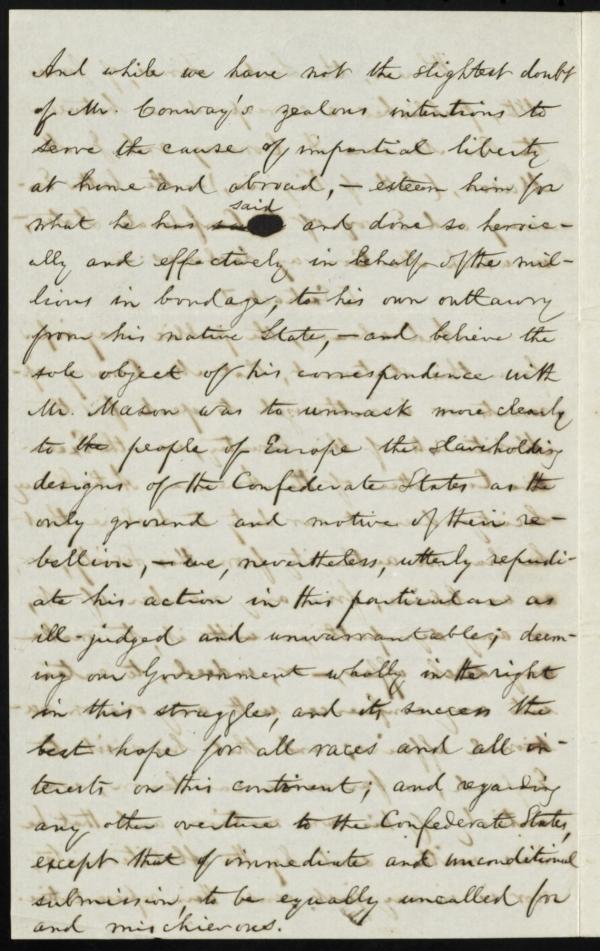 And while we have not the slightest doubt
of Mr. Conway's zealous intentions to
serve the cause of impartial liberty
at home and abroad, — esteem him for
said
what he has and done so heroic-
ally and effectively in behalf of the mil-
lions in bondage, to his own outlawry
from his native State, — and believe the
sole object of his correspondence with
Mr. Mason was to unmask more clearly
to the people of Europe the slaveholding
designs of the Confederate States as the
only ground and motive of their re-
bellion, — we, nevertheless, utterly repudi-
ate his action in this particular as
ill-judged and unwarrantable; deem-
ing our Government wholly in the right
in this struggle, and its success the
best hope for all races and all in-
terests on this continent; and regarding
any other overture to the Confederate States,
except that of immediate and unconditional
submission, to be equally uncalled for
and mischievous.